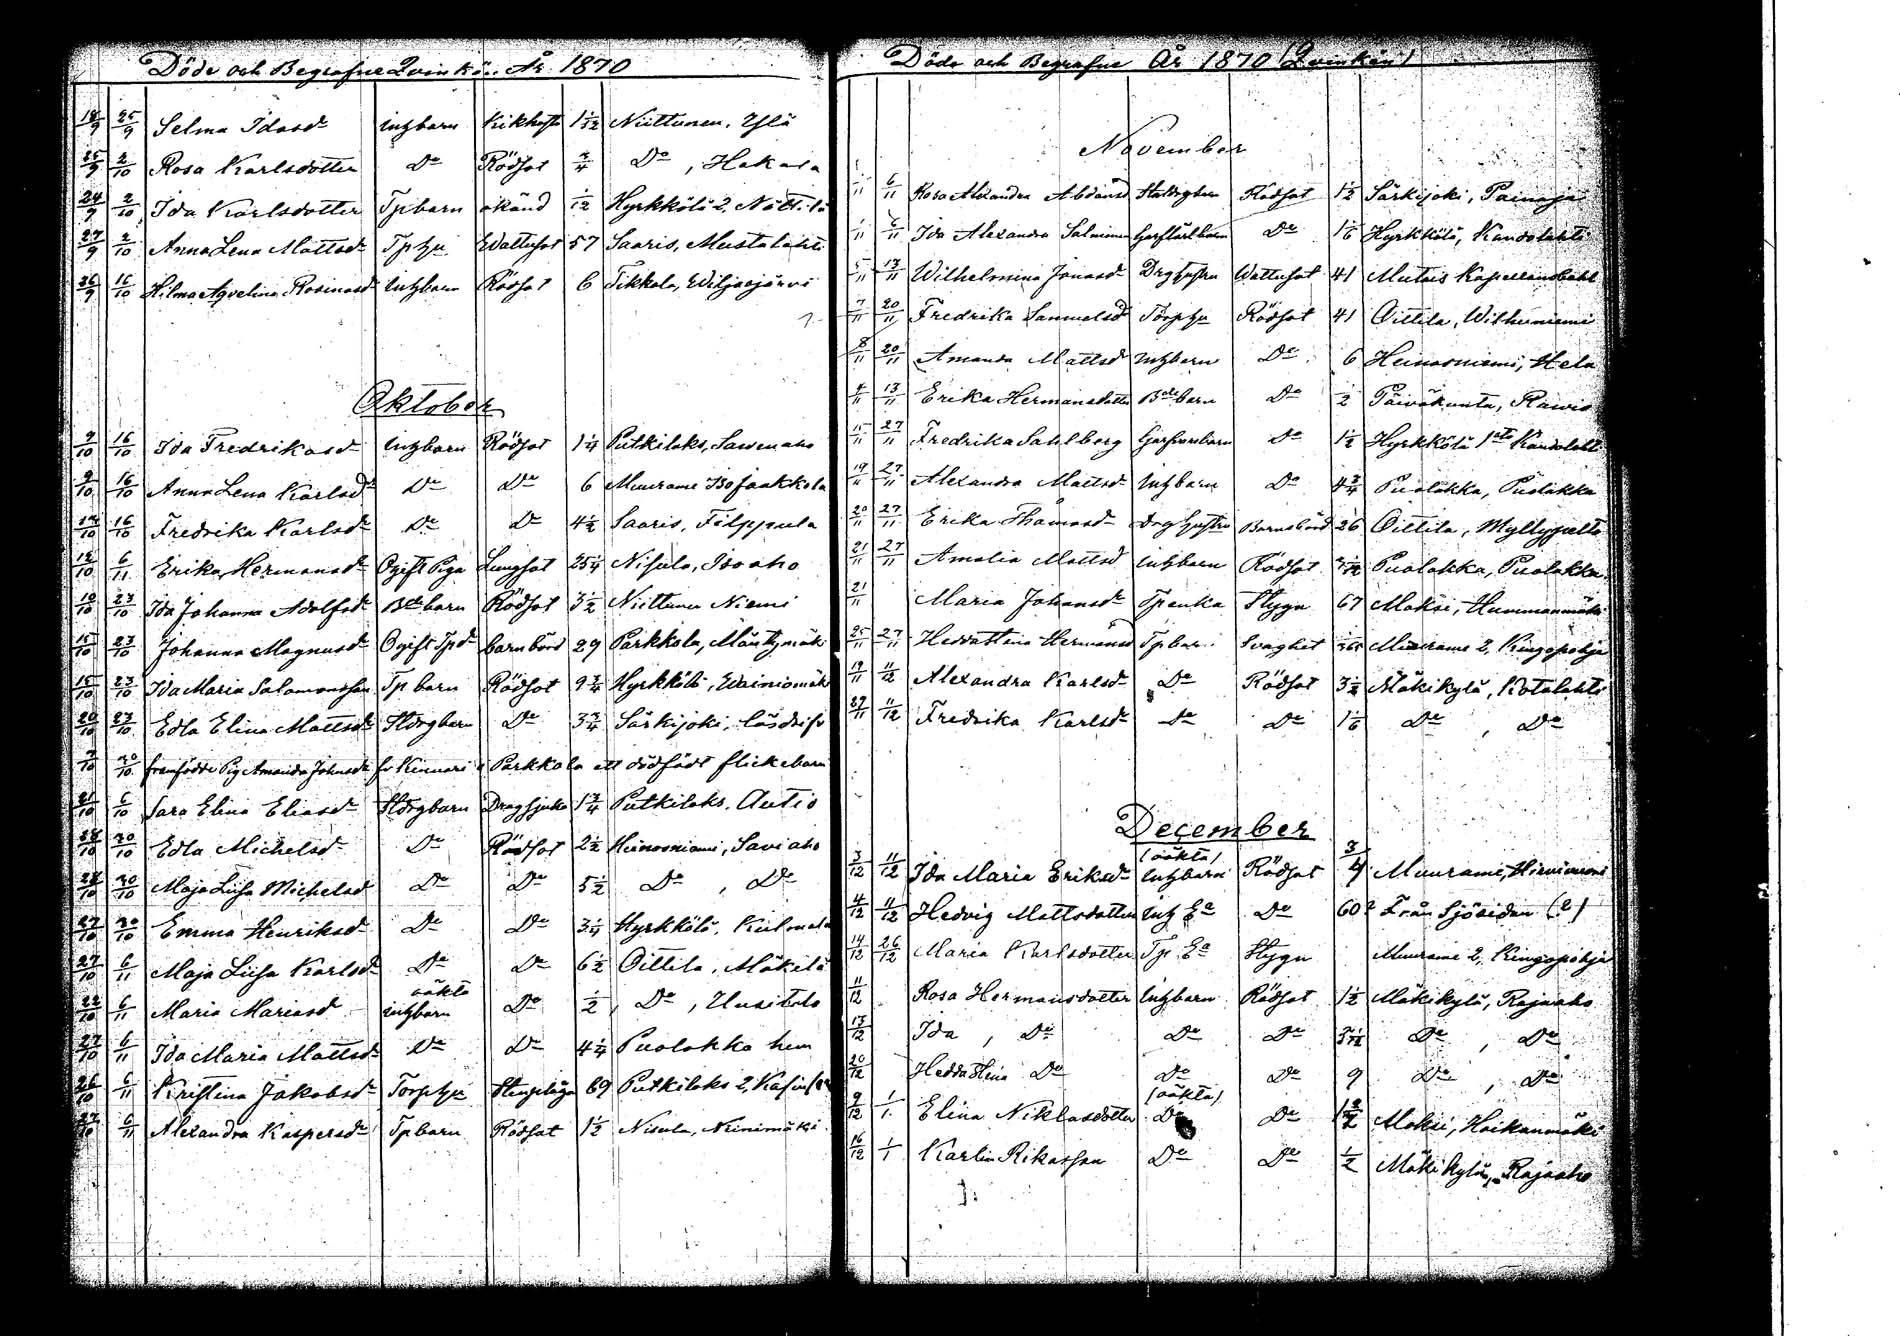 Döde och Begrafne Qvinkön År 1870
18/9 25/9 Selma Idasdr Inhbarn Kikhosta 1 1/12 Niittunen, Ylä
25/9 2/10 Rosa Karlsdotter Do Rödsot 3/4 Do, Hakala
24/9 2/10 Ida Karlsdotter Tpbarn okänd 1/12 Hyrkkölä 2, Nättilä
27/9 2/10 Anna Lena Mattsdr Tphu Wattusot 57 Saaris, Mustalahti
26/9 16/10 Hilma Aqvelina Rosinasd Inhbarn Rödsot 6 Tikkala, Wiljasjärvi
Oktober
9/10 16/10 Ida Fredrikasdr Inhbarn Rödsot 1 1/4 Putkilaks, Sawenaho
9/10 16/10 Anna Lena Karlsdr Do Do 6 Muurame Isojaakkola
16/10 Fredrika Karlsdr Do Do 4 1/2 Saaris, Filppula
12/10 6/11 Erika Hermansdr Ogift Piga Lungsot 25 1/4 Nisula, Isoaho
10/10 23/10 Ida Johanna Adolfsdr Bdebarn Rödsot 3 1/2 Niittunen Niemi
15/10 23/10 Johanna Magnusdr Ogift Tpdr barnbörd 29 Parkkola, Mäntymäki
15/10 23/10 Ida Maria Salomonsson Tp barn Rödsot 9 3/4 Hyrkkölä, Wainiomäki
20/10 23/10 Edla Elina Mattsdr Stdrgbarn Do 3 3/4 Särkijoki,
7/10 30/10 framfödde Pig Amanda Johnsdr fr Kinnari i Parkkola ett dödfödt flickebarn
21/10 6/10 Sara Elina Eliasdr Stdrgbarn Dragsjuka 1 3/4 Putkilaks, Autio
28/10 30/10 Edla Michelsdr Do Rödsot 2 1/2 Heinosniemi, Saviaho
28/10 30/10 Maja Lisa Michelsd Do Do 5 1/2 Do, Do
27/10 30/10 Emma Henriksdr Do Do 3 1/4 Hyrkkölä, Kulmala
27/10 6/11 Maja Lisa Karlsdr Do Do 6 1/2 Oittila, Mäkilä
22/10 6/11 Maria Mariasd oäkta Inhbarn Do 1/2, Do, Uusitalo
27/10 6/11 Ida Maria Mattsdr Do Do 4 1/4 Puolakka hem
26/10 6/11 Kristina Jakobsdr Torphu Stenplåga 69 Putkilaks 2,
27/10 6/11 Alexandra Kaspersdr Tpbarn Rödsot 1 1/2 Nisula, Niinimäki
Döde och Begrafne År 1870 (Qvinkön)
November
/11 6/11 Rosa Alexandra Abdonsd Stattdrgbarn Rödsot 1 1/2 Särkijoki, Painoja
1/11 6/11 Ida Alexandra Salminen Do 1 1/6 Hyrkkölä, Kandolahti
5/11 13/11 Wilhelmina Jonasdr Drghustru Wattusot 41 Mutais Kapellansbohl
7/11 20/11 Fredrika Samuelsdr Torphu Rödsot 41 Oittila, Wihuniemi
8/11 20/11 Amanda Mattsd Inhbarn Do 6 Heinosniemi, Hela
4/11 13/11 Erika Hermansdotter Bdebarn Do 1/2 Päiväkunta, Rawis
15/11 27/11 Fredrika Sahlberg Do 1 1/2 Hyrkkölä 1sta Kandolahti
19/11 27/11 Alexandra Mattsd Inhbarn Do 4 3/4 Puolakka, Puolakka
20/11 27/11 Erika Thomasdr Drg hustru Barnsbörd 26 Oittila, Myllypelto
21/11 27/11 Amalia Mattsd Inhbarn Rödsot Puolakka, Puolakka
21/11 Maria Johansdr Tpenka Stygn 67 Moksi, Hummanmäki
25/11 27/11 Hedda Stina Hermansd Tpbarn Svaghet 1/365 Muurame 2, Kingopohja
19/11 11/12 Alexandra Karlsdr Do Rödsot 3 1/2 Mäkikylä, Kotalahti
27/11 11/12 Fredrika Karlsdr Do Do 1 1/6 Do, Do
December
3/12 11/12 Ida Maria Eriksdr (oäkta) Inhbarn Rödsot 3/4 Muurame, Hirvivuori
4/12 11/12 Hedvig Mattsdotter Inh Ea Do 60? Från Sjösidan (?)
14/12 26/12 Maria Karlsdotter Tp Ea Stygn Muurame 2, Kingopohja
11/12 Rosa Hermansdotter Inhbarn Rödsot 1 1/2 Mäkikylä, Rajaaho
13/12 Ida, Do Do Do 3 1/12 Do, Do
20/12 Hedda Stina Do Do Do 9 Do, Do
9/12 1/1 Elina Niklasdotter (oäkta) Do Do Moksi, Haikanmäki
16/12 1/1 Karlin Rikasson Do Do 1/2 Mäkikylä, Rajaaho